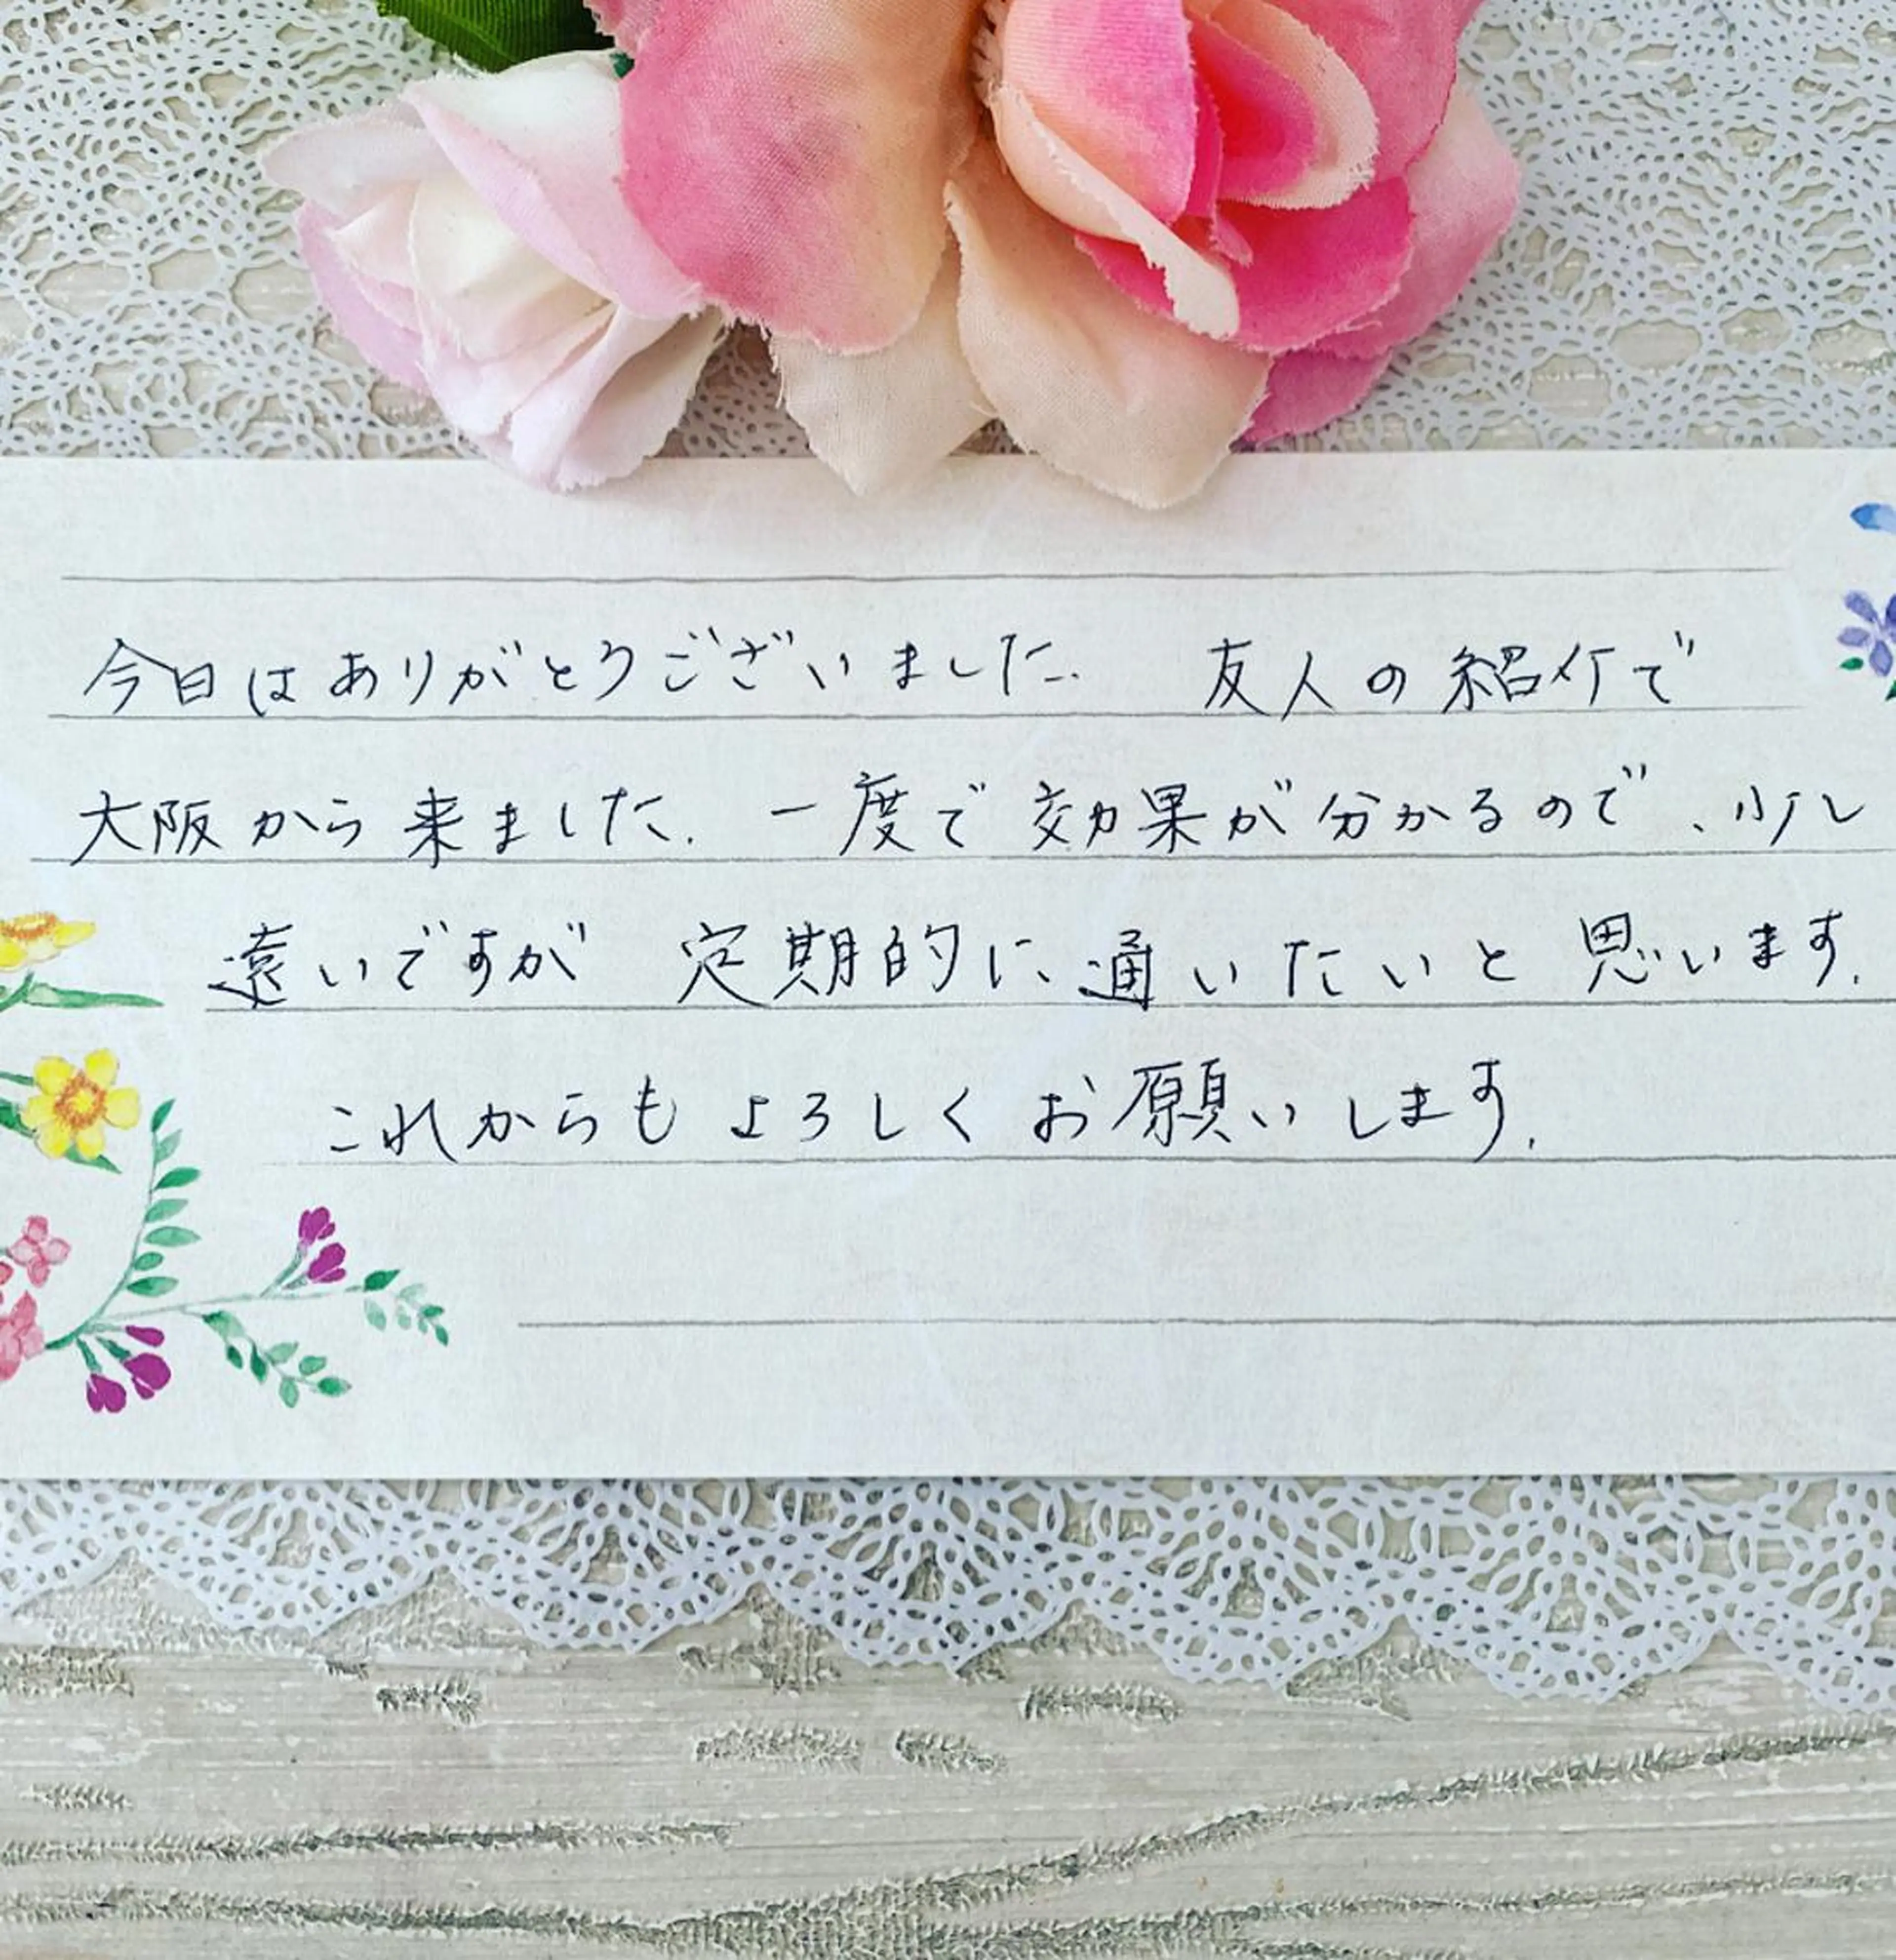 今日はありがとうございました. 友人の紹介で
大阪から来ました. 一度で効果が分かるので、少し
遠いですが 定期的に通いたいと思います.
これからもよろしくお願いします.